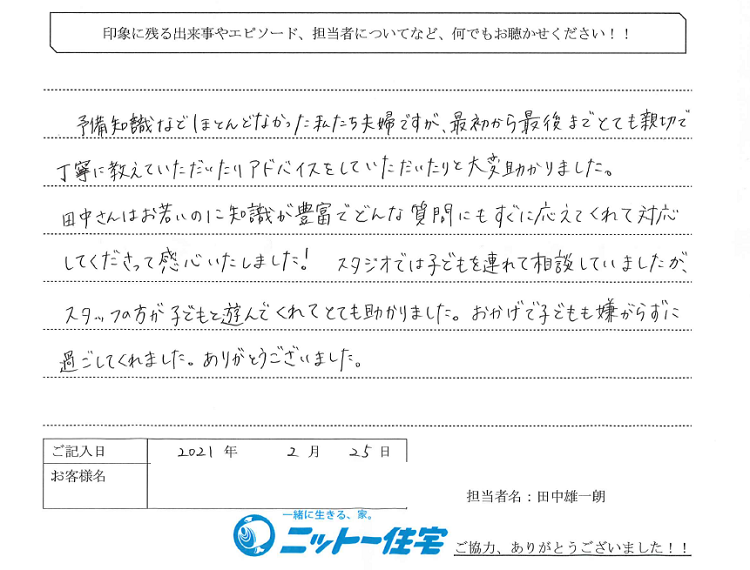 印象に残る出来事やエピソード、担当者についてなど、何でもお聴かせください！！
予備知識などほとんどなかった私たち夫婦ですが、最初から最後までとても親切で
丁寧に教えていただいたりアドバイスをしていただいたりと大変助かりました。
田中さんはお若いのに知識が豊富でどんな質問にもすぐに応えてくれて対応
してくださって感心いたしました！ スタジオでは子どもを連れて相談していましたが、
スタッフの方が子どもと遊んでくれてとても助かりました。おかげで子どもも嫌がらずに
過ごしてくれました。ありがとうございました。
ご記入日 2021年 2月 25日
お客様名
担当者名：田中雄一朗
一緒に生きる、家。
ニットー住宅
ご協力、ありがとうございました！！